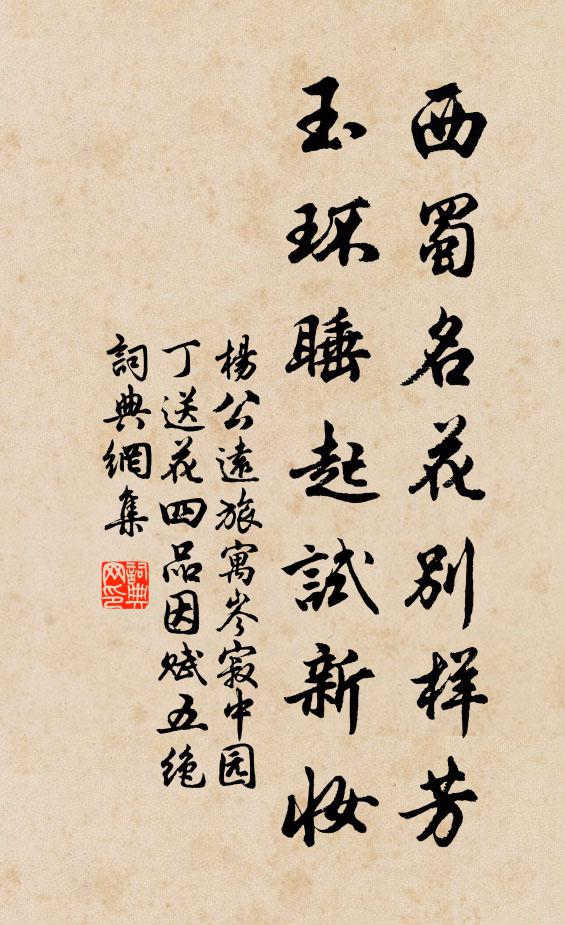 西蜀名花别样芳
玉环睡起試新妝
楊公遠旅寓岑寂中园
丁送花四品因赋五绝
詞典網集
詞典网印